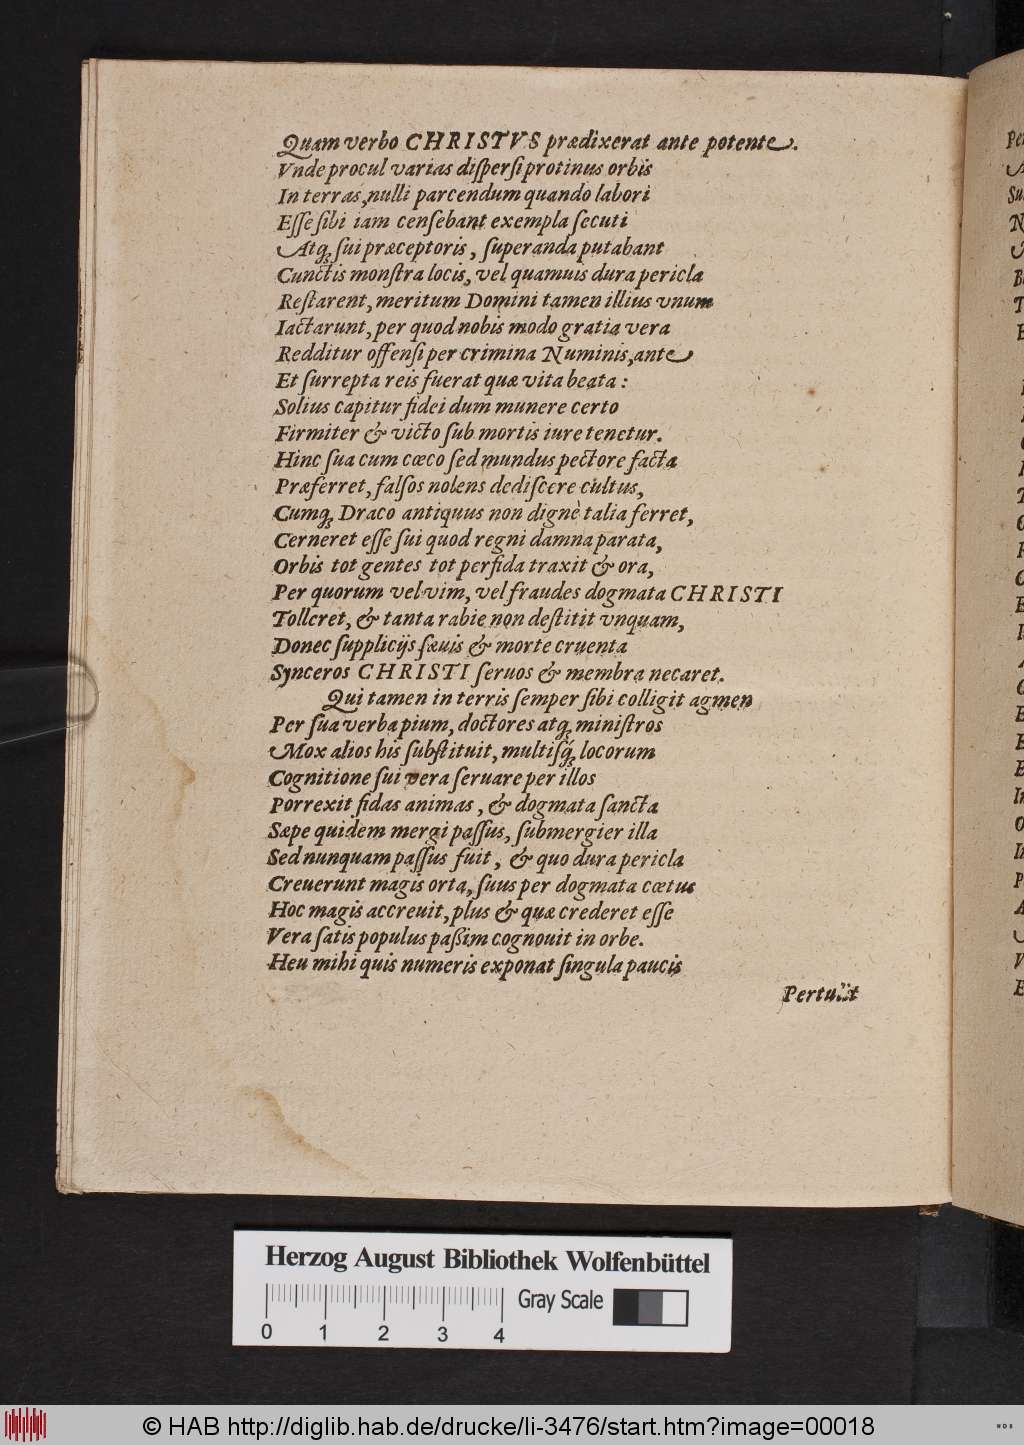 Quam verbo CHRISTVS prædixerat ante potente.
Vnde procul varias dispersi protinus orbis
In terras, nulli parcendum quando labori
Esse sibi iam censebant exempla secuti
Atq; sui præceptoris, superanda putabant
Cunctis monstra locis, vel quamuis dura pericla
Restarent, meritum Domini tamen illius vnum
Iactarunt, per quod nobis modo gratia vera
Redditur offensi per crimina Numinis, ante
Et surrepta reis fuerat quæ vita beata:
Solius capitur fidei dum munere certo
Firmiter & victo sub mortis iure tenetur.
Hinc sua cum cœco sed mundus pectore facta
Præferret, falsos nolens dediscere cultus,
Cumq; Draco antiquus non dignè talia ferret,
Cerneret esse sui quod regni damna parata,
Orbis tot gentes tot perfida traxit & ora,
Per quorum vel vim, vel fraudes dogmata CHRISTI
Tolleret, & tanta rabie non destitit vnquam,
Donec supplicijs sæuis & morte cruenta
Synceros CHRISTI seruos & membra necaret.
Qui tamen in terris semper sibi colligit agmen
Per sua verba pium, doctores atq; ministros
Mox alios his substituit, multisq́; locorum
Cognitione sui vera seruare per illos
Porrexit fidas animas, & dogmata sancta
Sæpe quidem mergi passus, submergier illa
Sed nunquam passus fuit, & quo dura pericla
Creuerunt magis orta, suus per dogmata cœtus
Hoc magis accreuit, plus & quæ crederet esse
Vera satis populus paßim cognouit in orbe.
Heu mihi quis numeris exponat singula paucis
Pertulit
Herzog August Bibliothek Wolfenbüttel
Gray Scale
0 1 2 3 4
© HAB http://diglib.hab.de/drucke/li-3476/start.htm?image=00018